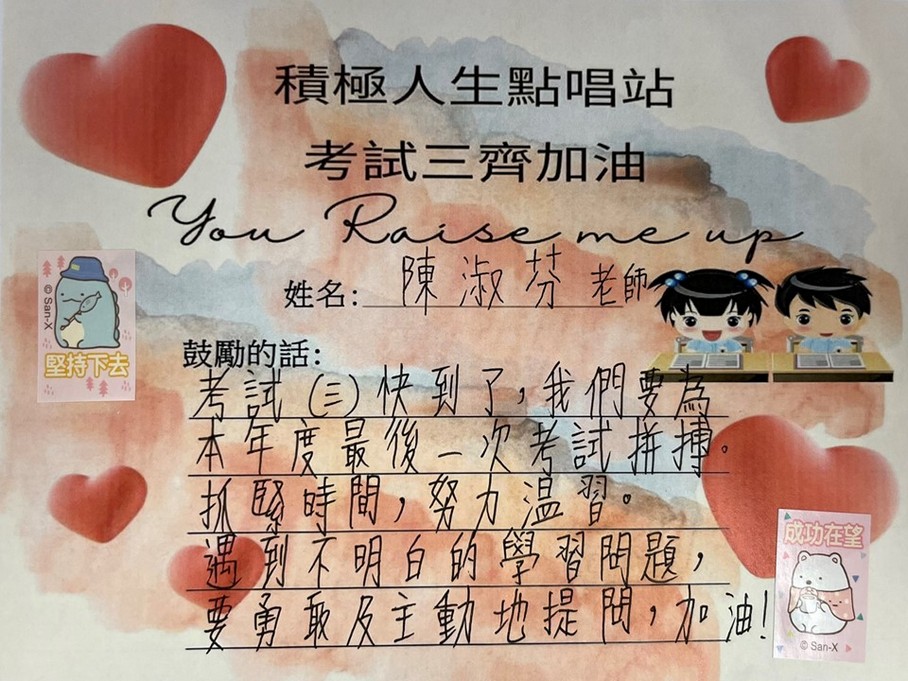 積極人生點唱站
考試三齊加油
You Raise me up
姓名: 陳淑芬 老師
© San-X
堅持下去
鼓勵的話:
考試(三)快到了，我們要為
本年度最後一次考試拼搏。
抓緊時間，努力溫習。
遇到不明白的學習問題，
要勇敢及主動地提問，加油!
成功在望
© San-X